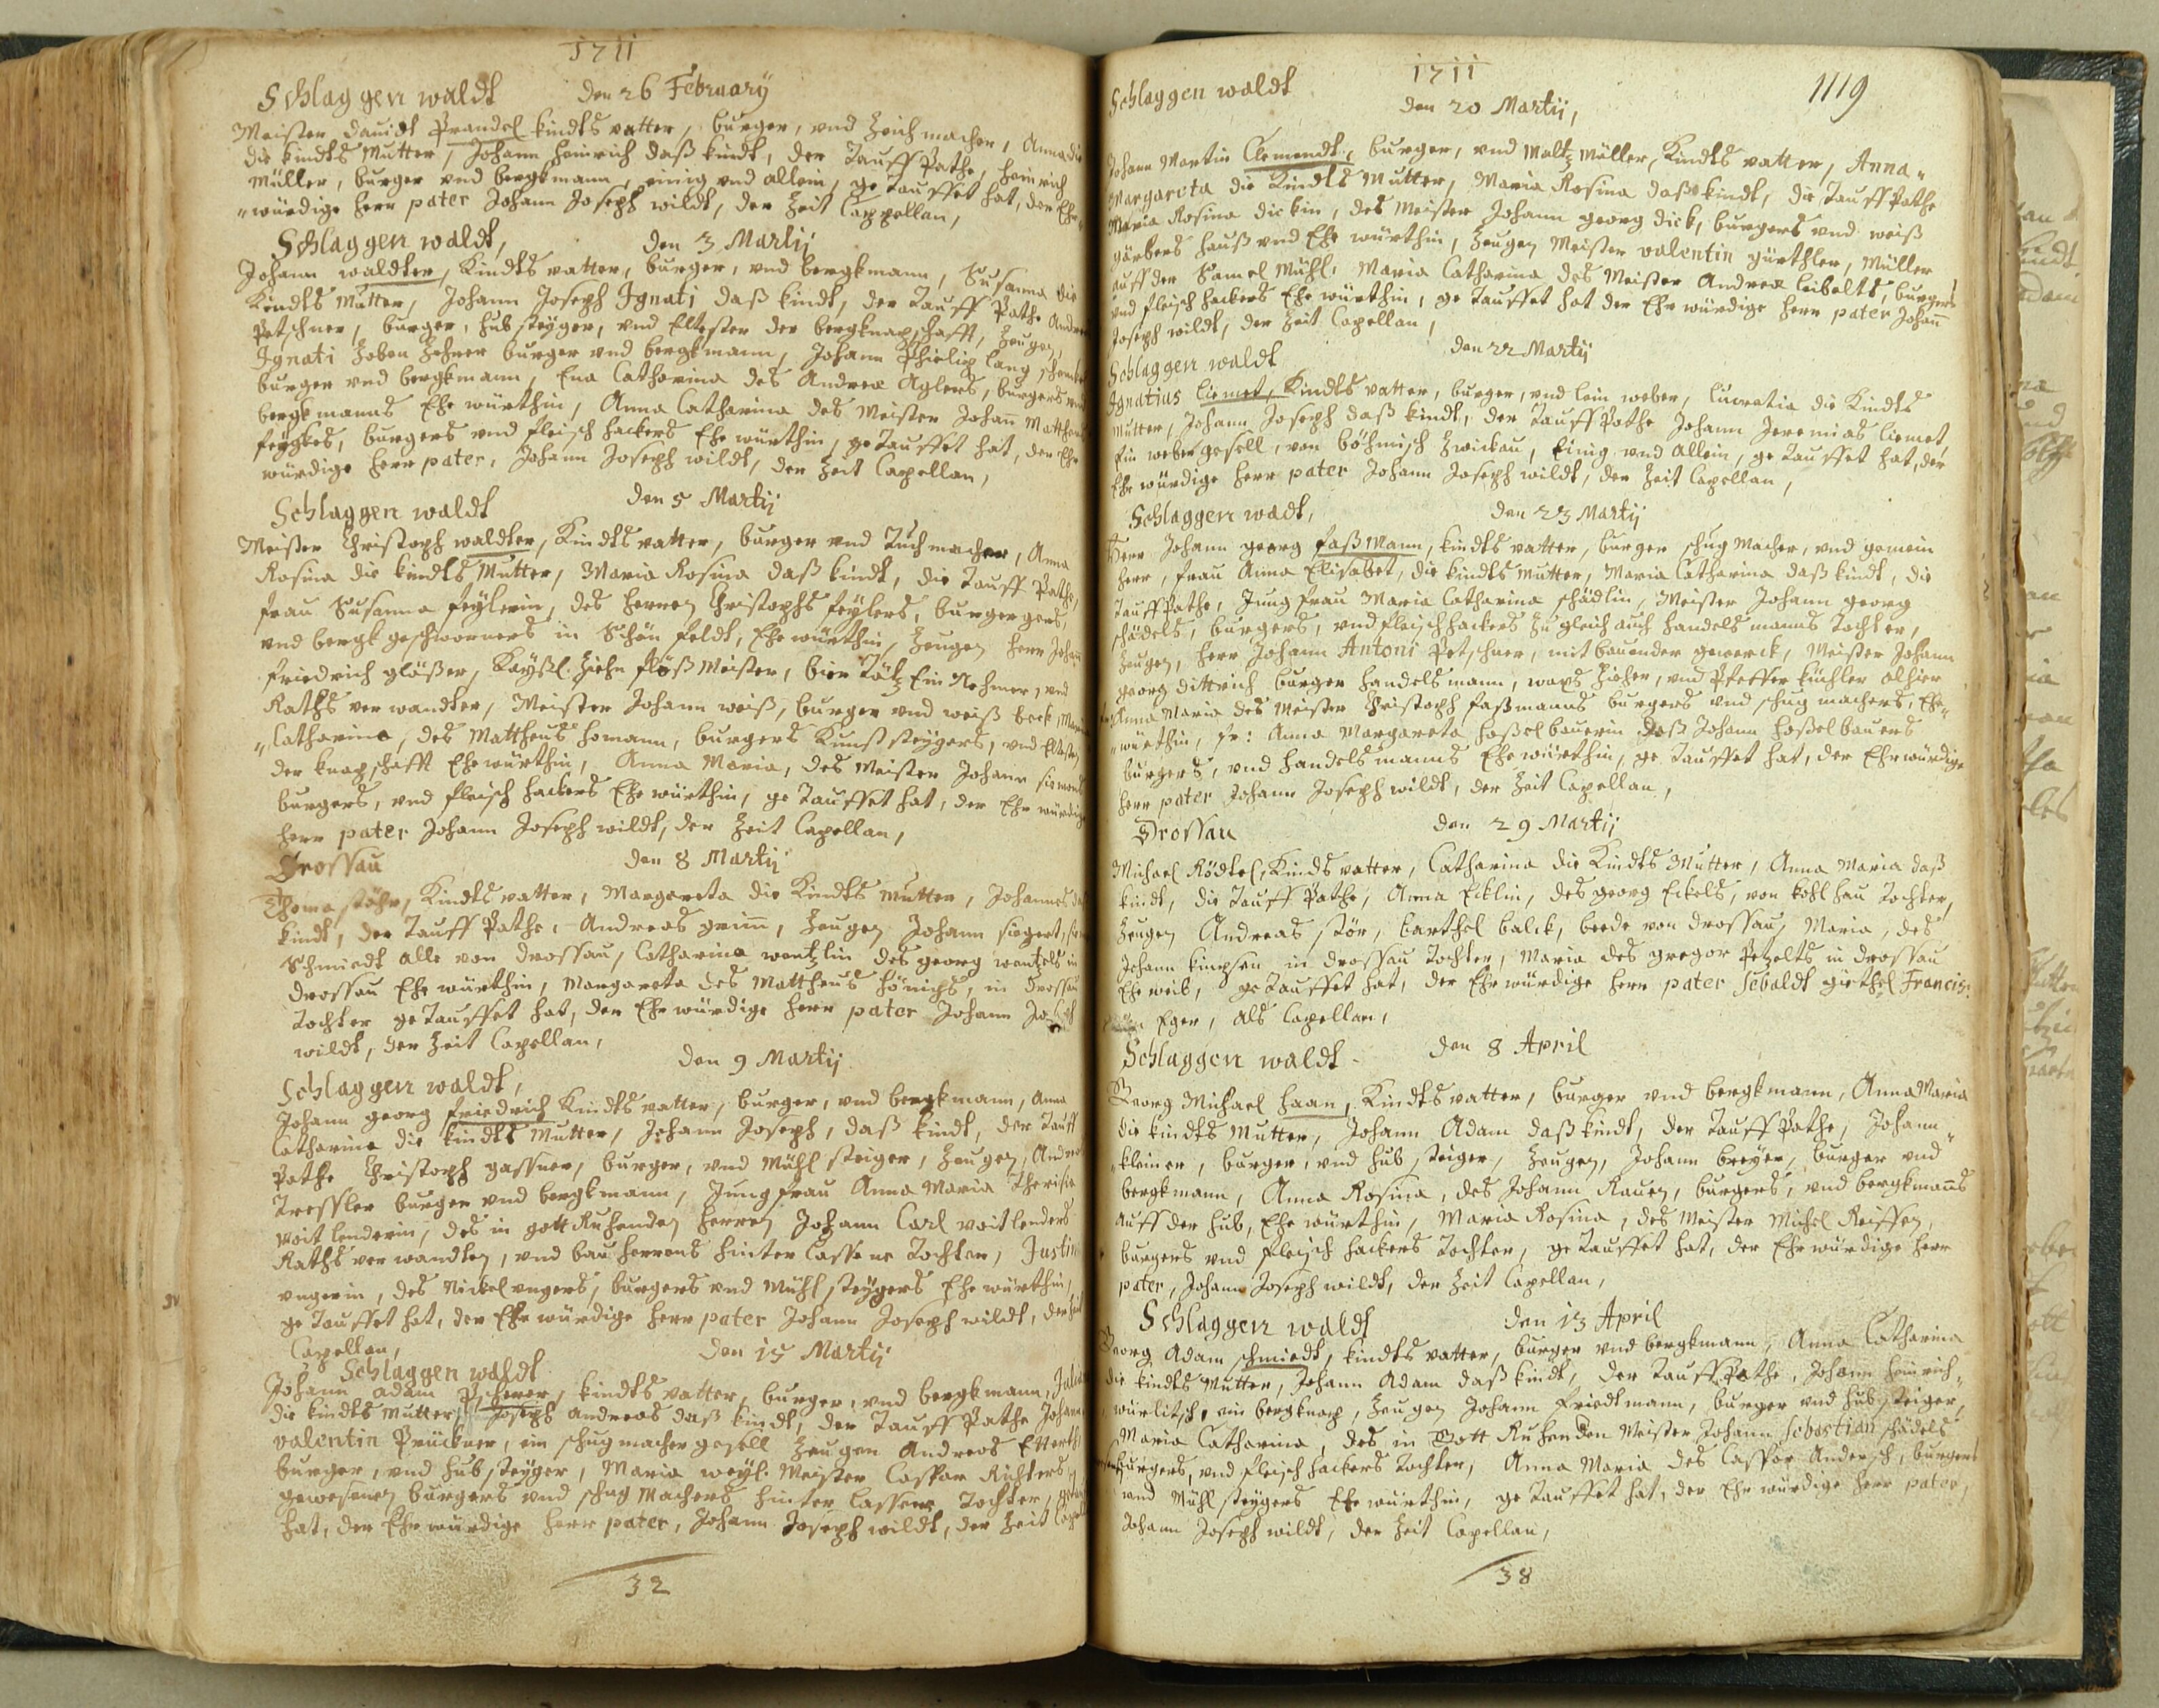 1711
Schlaggen waldt den 26 February
Meister dauidt Prandel kindts vatter, burger, und Zeich macher, Anna
die kindts Mutter, Johann Heinrich daß kindt, der Tauff Pathe, Heinrich
Müller, burger und bergkmann, einig und allein, ge Tauffet hat, der Ehr
würdige Herr pater Johann Joseph wildt, der Zeit Cappellan,
Schlaggen waldt, den 3 Martij
Johann waldter, Kindts vatter, burger, und bergkmann, Susanna die
Kindts Mutter, Johann Joseph Ignati daß kindt, der Tauff Pathe
Petschner, burger, hub steyger, und Eltester der bergknapschafft, Zeugen,
Ignati burger und bergkmann, Johann Phielip lang
burger und bergkmann, Eua Catharina des Andrea Aglers, burgers und
bergkmanns Ehe würthin, Anna Catharina des Meister Johann
burgers und fleisch hackers Ehe würthin, ge Tauffet hat, der Ehr
würdige Herr pater, Johann Joseph wildt, der Zeit Capellan,
Schlaggen waldt den 5 Martij
Meister Christoph waldter, Kindts vatter, burger und Tuch macher, Anna
Rosina die kindts Mutter, Maria Rosina daß kindt, die Tauff Pathe,
frau Susanna feylerin, des Herren Christophs feylers, burgergers,
und bergk geschworners in Schön feldt, Ehe würthin, Zeugen Herr Johann
friedrich gläßer, Kayßl. Ziehn flöß Meister, bier Tätz Ein Nehmer, und
Raths ver wandter, Meister Johann weiß, burger und weiß beck, Maria
Catharina, des Mattheus homann, burgers Kunst steygers, und Eltesten
der knapschafft Ehe würthin, Anna Maria, des Meister Johann
burgers, und fleisch hackers Ehe würthin, ge Tauffet hat, der Ehr würdige
Herr pater Johann Joseph wildt, der Zeit Capellan,
Drossau den 8 Martij
Thoma stöhr, Kindts vatter, Margareta die Kindts Mutter, Johannes
kindt, der Tauff Pathe, Andreas grim, Zeugen Johann siegert,
Schmiedt alle von drossau, Catharina wentzlin des georg wentzels in
drossau Ehe würthin, Margareta des Mattheus hönichs, in drossau
Tochter ge Tauffet hat, der Ehr würdige Herr pater Johann Joseph
wildt, der Zeit Capellan,
den 9 Martij
Schlaggen waldt,
Johann georg friedrich Kindts vatter, burger, und bergkmann, Anna
Catharina die kindts Mutter, Johann Joseph, daß kindt, der Tauff
Pathe Christoph gassner, burger, und Mühl steiger, Zeugen, Andreas
Tressler burger und bergkmann, Jung frau Anna Maria Therisia
voit lenderin, des in gott Ruhenden Herren Johann Carl voit lenders
Raths ver wandten, und bau herrens hinter Lassene Tochter, Justina
ungerin, des Nickel ungers, burgers und Mühl steygers Ehe würthin,
ge Tauffet hat, der Ehr würdige Herr pater Johann Joseph wildt, der Zeit
Capellan,
Schlaggen waldt den 15 Martij
Johann adam kindts vatter, burger, und bergkmann,
die kindts Mutter, Joseph andreas daß kindt, der Tauff Pathe Johann
valentin Prückner, ein schug macher gesell Zeugen Andreas
burger, und hub steyger, Maria weyl. Meister Caspar Richters,
gewesenen burgers und schug Machers hinter lassene Tochter,
hat, der Ehr würdige Herr pater, Johann Joseph wildt, der Zeit
32
1711
1119
Schlaggen waldt
den 20 Martij,
Johann Martin Clemendt, burger, und Maltz Müller, Kindts vatter, Anna
Margareta die Kindts Mutter, Maria Rosina daß kindt, die Tauff Pathe
Maria Rosina dickin, des Meister Johann georg dick, burgers und weiß
gärbers hauß und Ehe würthin, Zeugen Meister valentin gürthler, Müller
auff der Samel Mühl, Maria Catharina des Meister Andrea leibelts, burgers
und fleisch hackers Ehe würthin, ge Tauffet hat der Ehr würdige Herr pater Johann
Joseph wildt, der Zeit Capellan,
den 22 Martij
Schlaggen waldt
Ignatius liemet, Kindts vatter, burger, und lein weber, lucretia die Kindts
Mutter, Johann Joseph daß kindt, der Tauff Pathe Johann Jeremias liemet,
Ein weber gesell, von böhmisch Zwickau, Einig und allein, ge Tauffet hat, der
Ehr würdige Herr pater Johann Joseph wildt, der Zeit Capellan,
Schlaggen wadt, den 23 Martij
Herr Johann georg faßmann, kindts vatter, burger schug Macher, und gemein
herr, frau Anna Elisabet, die kindts Mutter, Maria Catharina daß kindt, die
Tauff Pathe, Jung frau Maria Catharina schädlin, Meister Johann georg
schädels, burgers, und fleisch hackers Zu gleich auch handels manns Tochter,
Zeugen, Herr Johann Antoni Petschner, mit bauender gewerck, Meister Johann
georg dittrich burger handels mann, waxs Zieher, und Pfeffer küchler alhier
Anna Maria des Meister Christoph faßmanns burgers und schug machers, Ehe
würthin, fr: Anna Margareta haßel bauerin daß Johann haßel bauers
burgers, und handels manns Ehe würthin, ge Tauffet hat, der Ehr würdige
Herr pater Johann Joseph wildt, der Zeit Capellan,
Drossau den 29 Martij
Michael Rödtel, Kinds vatter, Catharina die Kindts Mutter, Anna Maria daß
kindt, die Tauff Pathe, Anna Ecklin, des georg Eckels, von kohl hau Tochter,
Zeugen Andreas stör, barthel balck, beede von drossau, Maria, des
Johann in drossau Tochter, Maria des gregor Petzelts in drossau
Ehe weib, ge Tauffet hat, der Ehr würdige Herr pater Sebaldt girthel Francisc:
Eger, als Capellan,
Schlaggen waldt den 8 April
Georg Michael haan, Kindts vatter, burger und bergkmann, Anna Maria
die kindts Mutter, Johann Adam daß kindt, der Tauff Pathe, Johann
kleiner, burger, und hub steiger, Zeugen, Johann breyer, burger und
bergkmann, Anna Rosina, des Johann Rauen, burgers, und bergkmanns
auff der hub, Ehe würthin, Maria Rosina, des Meister Michel Reissen,
burgers und fleisch hackers Tochter, ge Tauffet hat, der Ehr würdige Herr
pater, Johann Joseph wildt, der Zeit Capellan,
Schlaggen waldt den 13 April
Georg Adam schmiedt, kindts vatter, burger und bergkmann, Anna Catharina
die kindts Mutter, Johann Adam daß kindt, der Tauff Pathe, Johann Heinrich
würlitsch, ein bergknap, Zeugen Johann friedtmann, burger und hub steiger,
Maria Catharina, des in Gott Ruhenden Meister Johann Sebastian schädels
burgers, und fleisch hackers Tochter, Anna Maria des Caspar Andersch, burgers
und Mühl steygers Ehe würthin, ge Tauffet hat, der Ehr würdige Herr pater,
Johann Joseph wildt, der Zeit Capellan,
38